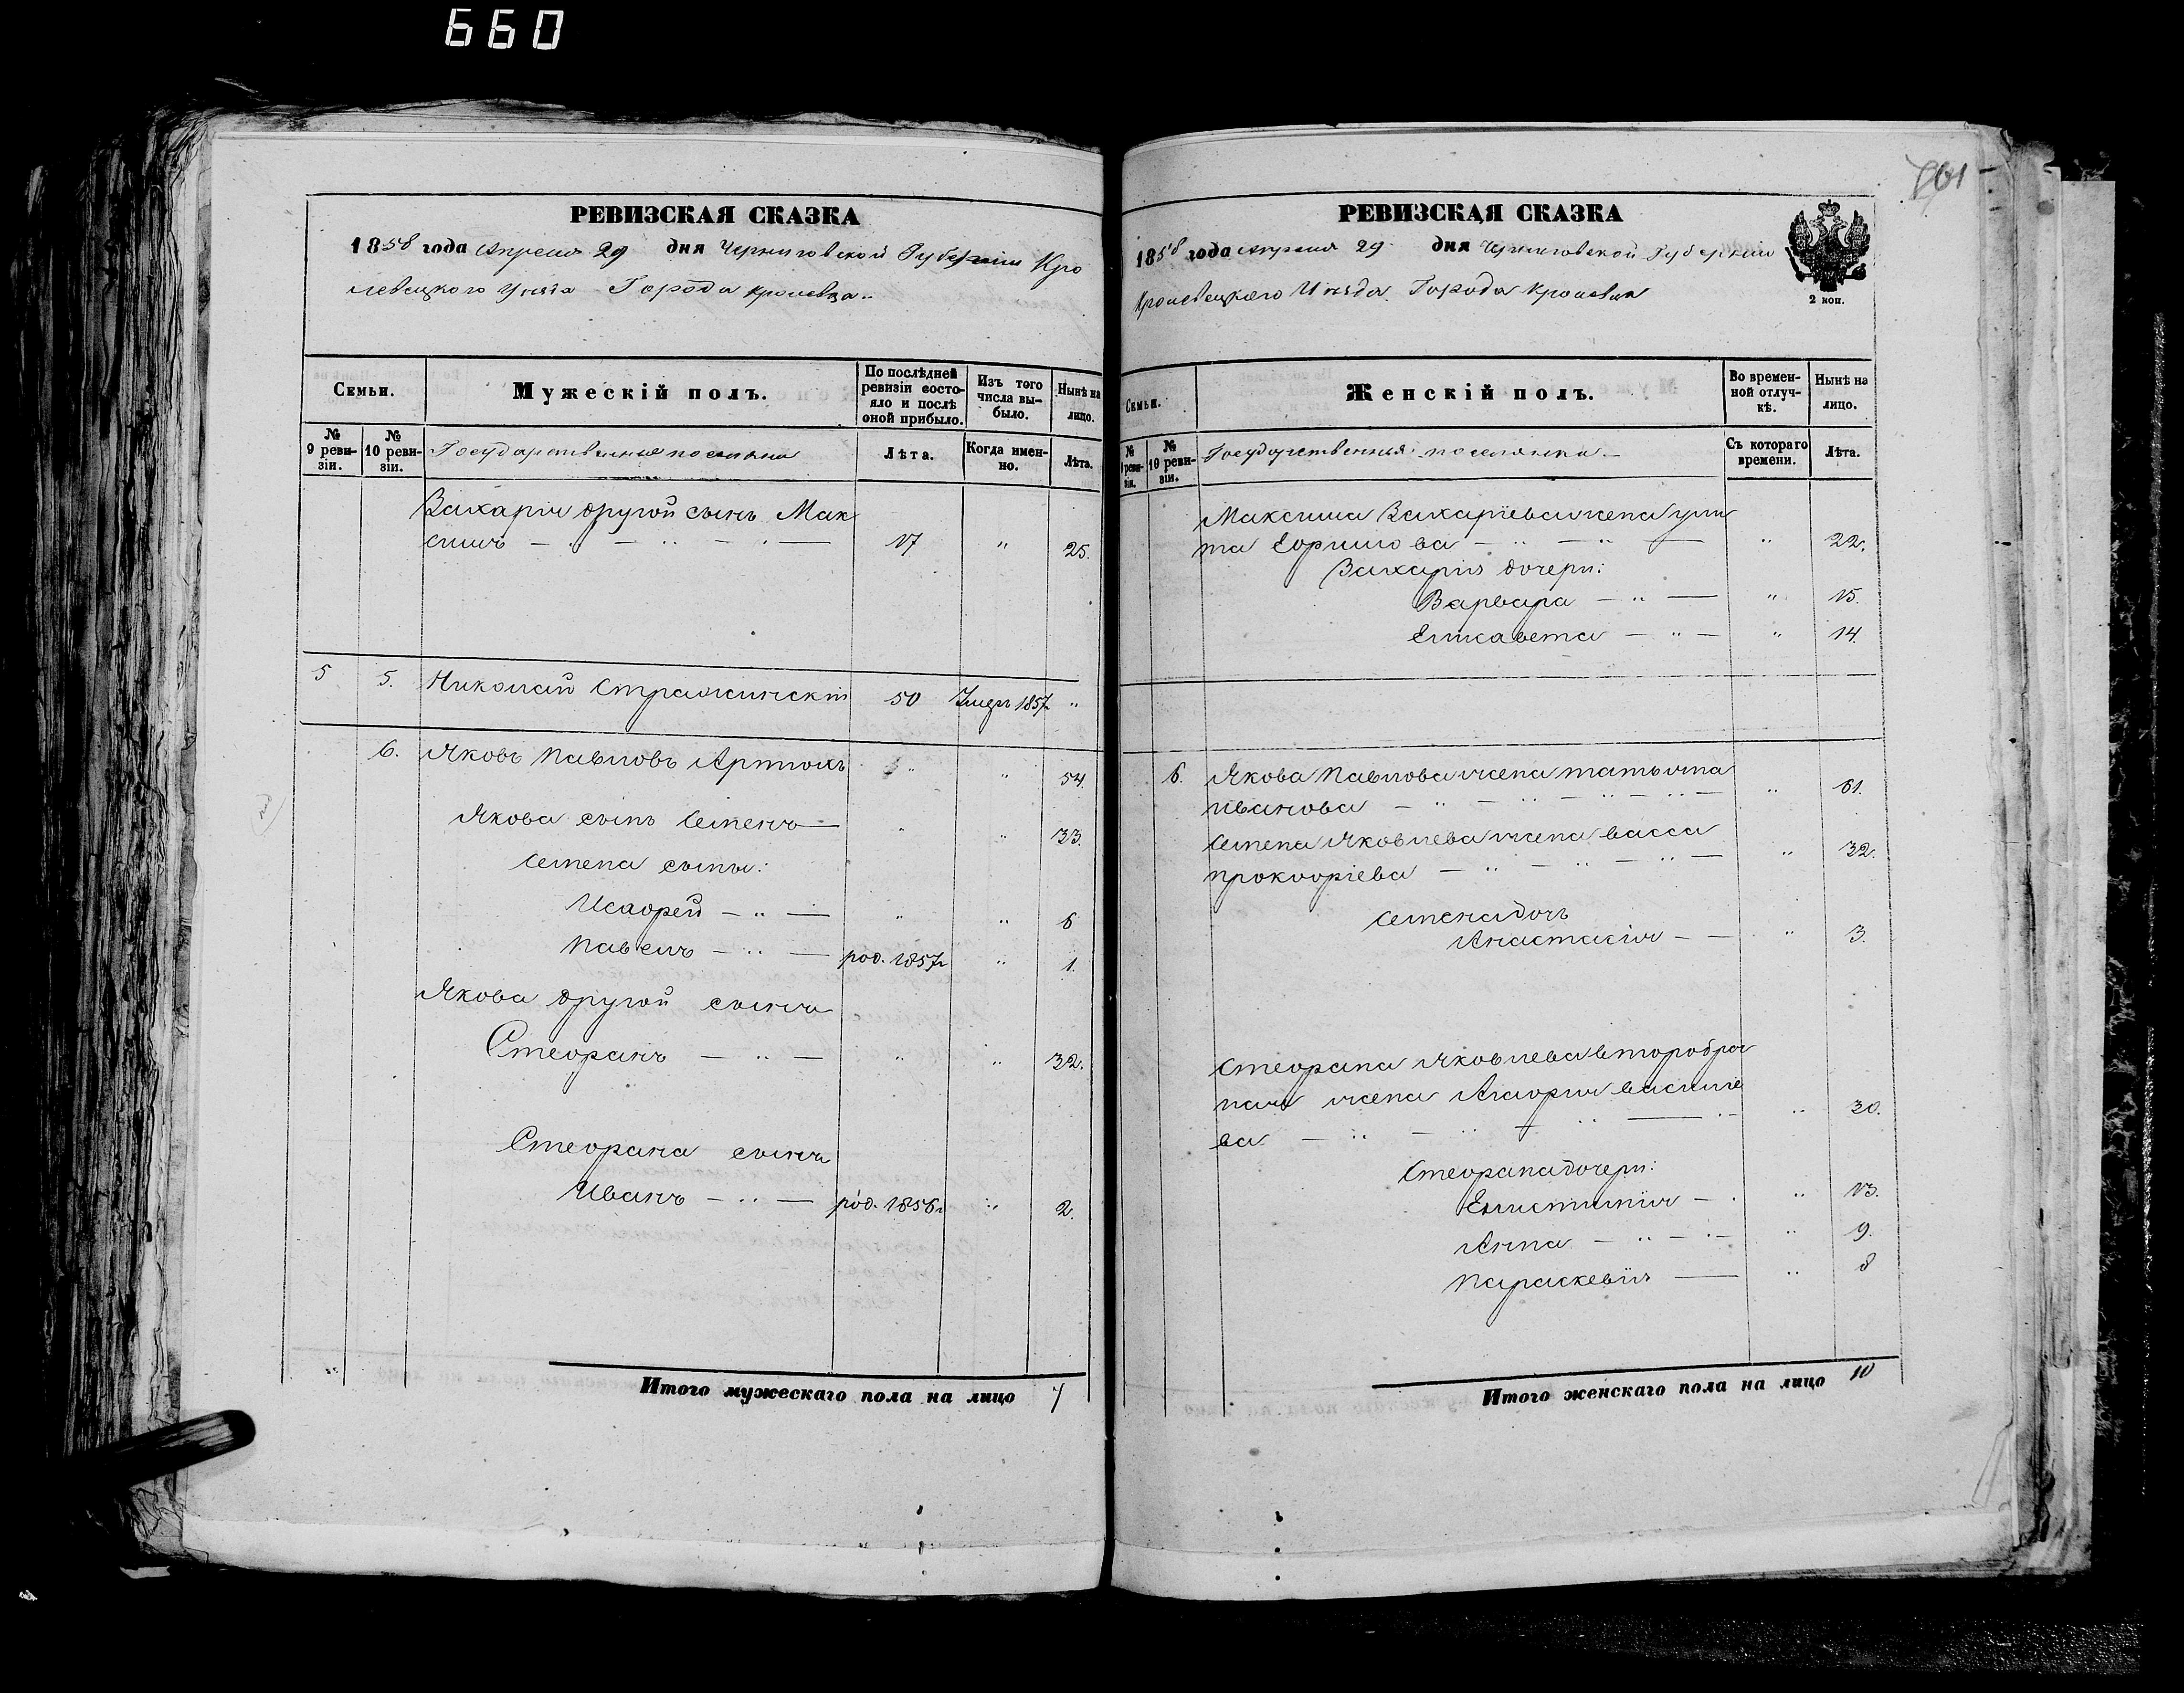 660
РЕВИЗСКАЯ СКАЗКА
1858 года Апреля 29 дня Черниговской Губернии Кро
левецкого Уѣзда Города Кролевца
Семьи.
Мужескій полъ.
По послѣдней ревизіи состояло и послѣ оной прибыло.
Изъ того числа выбыло.
Нынѣ на лицо.
№ 9 ревизіи.
№ 10 ревизіи.
Государственные поселяне
Лѣта.
Когда именно.
Лѣта.
Захарія другой сынъ Мак
симъ — " — " — " — 17 " 25.
5 5. Николай Стражинскій 50 Умеръ 1857 "
6. Яковъ Павловъ Артюхъ " " 54.
Якова сынъ Семенъ — " " 33.
Семена сыны:
Исафей — " — " " 6
Павелъ — " — род. 1857 " 1.
Якова другой сынъ
Стефанъ — " — " " 32.
Стефана сынъ
Иванъ — " — род. 1856 " 2.
Итого мужескаго пола на лицо 7
701
РЕВИЗСКАЯ СКАЗКА
1858 года Апреля 29 дня Черниговской Губерніи
Кролевецкого Уѣзда Города Кролевца
2 коп.
Семьи.
Женскій полъ.
Во временной отлучкѣ.
Нынѣ на лицо.
№ 9 ревизіи.
№ 10 ревизіи.
Государственныя поселянки
Съ котораго времени.
Лѣта.
Максима Захаріева жена Ули
та Ефимова — " — " — " 22.
Захарія дочери:
Варвара — " — " 15.
Елисавета — " — " 14.
6. Якова Павлова жена Татьяна
Иванова — " — " — " — " — " 61.
Семена Яковлева жена Васса
Прокофіева — " — " — " — " 32.
Семена дочь
Анастасія — — " 3.
Стефана Яковлева второбра
чная жена Агафія Василіе
ва — " — " — " — " 30.
Стефана дочери:
Епистимія — " " 13.
Анна — " — " — " 9.
Параскевія — " 8
Итого женскаго пола на лицо 10